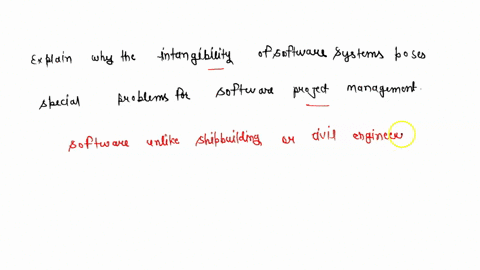 Explain why the intangibility of software systems poses
special problems for software project management.
software unlike shipbuilding or civil engineer